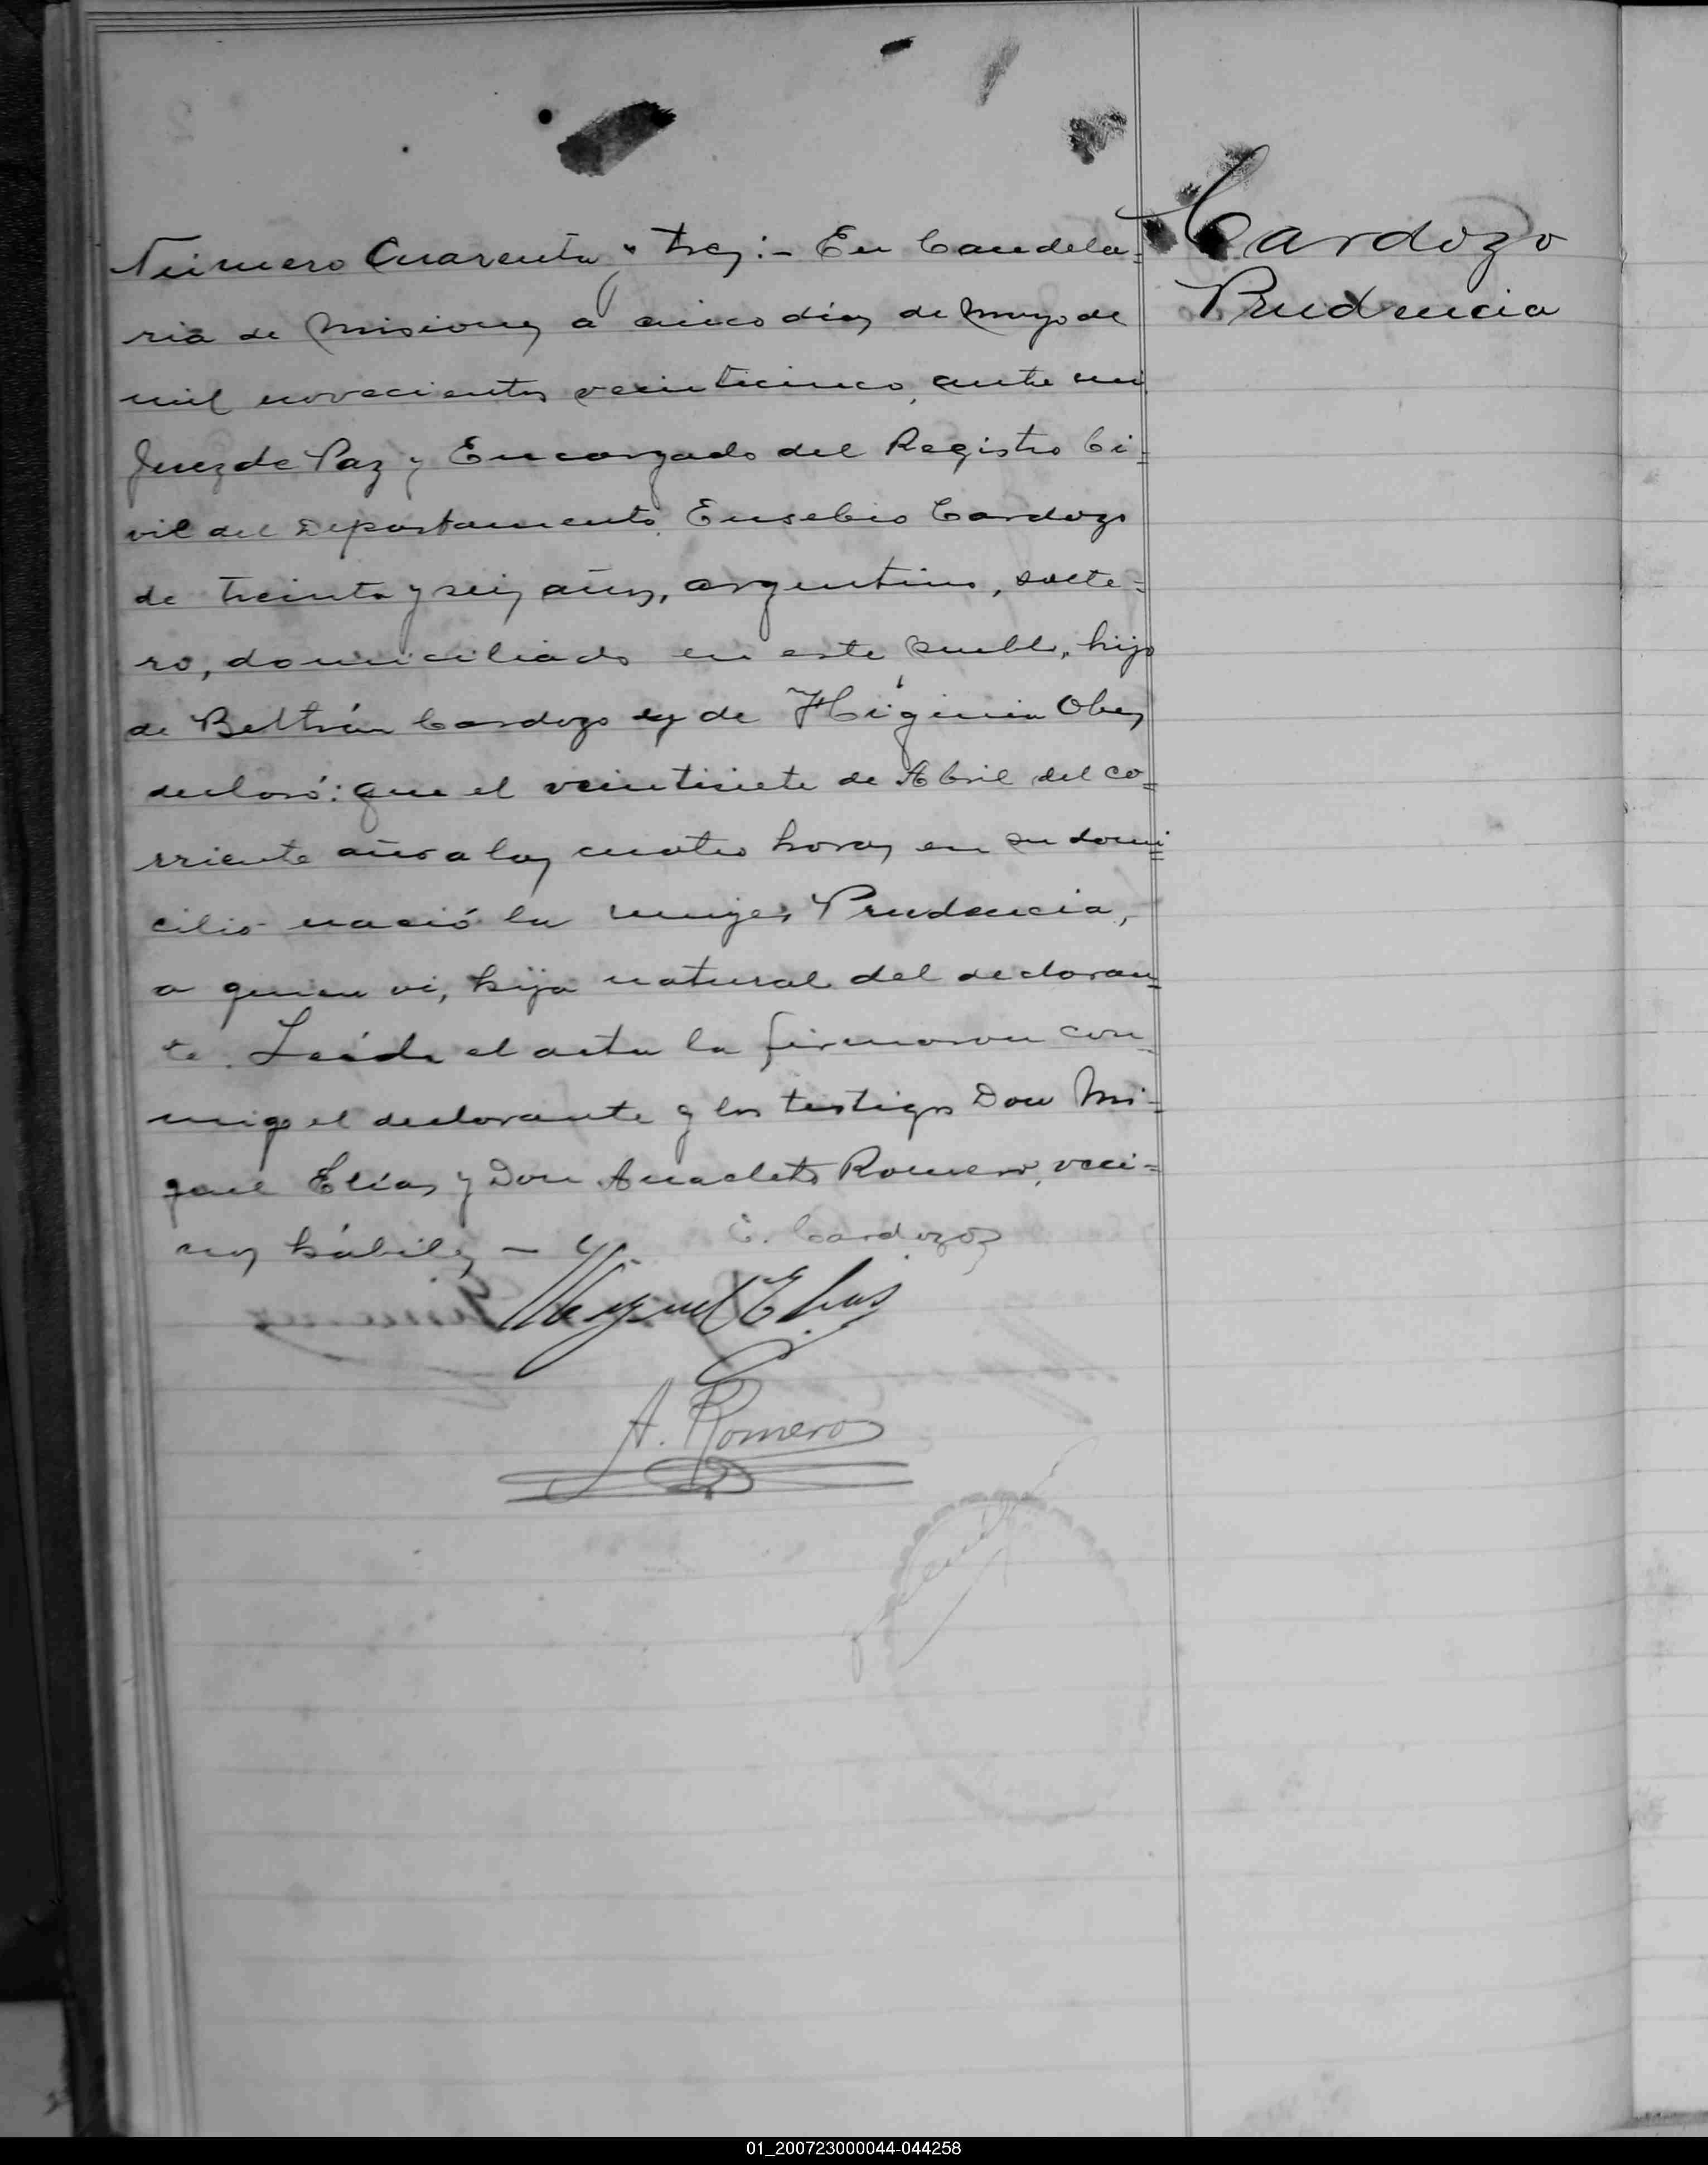 Cardozo
Prudencia
Número Cuarenta y tres:- En Candela=
ria de Misiones a cinco días de Mayo de
mil novecientos veinticinco, ante mi
Juez de Paz y Encargado del Registro Ci=
vil del Departamento, Eusebio Cardozo
de treinta y seis años, argentino, solte=
ro, domiciliado en este pueblo, hijo
de Beltrán Cardozo y de Higinia
declaró: que el veintisiete de Abril del co=
rriente año a las cuatro horas en su domi=
cilio nació la mujer Prudencia,
a quien vi, hija natural del declaran=
te. Leída el acta la firmaron con=
migo el declarante y los testigos Don Mi=
guel Elías y Don Anacleto Romero, veci=
nos hábiles –
E. Cardozo
Miguel Elias
A. Romero
01_200723000044-044258